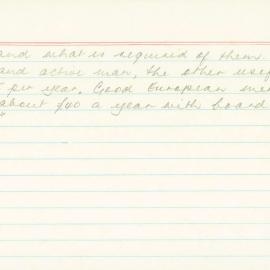 and what is required of them
and active man, the other usef
per year. Good European me
about £40 a year with board
"